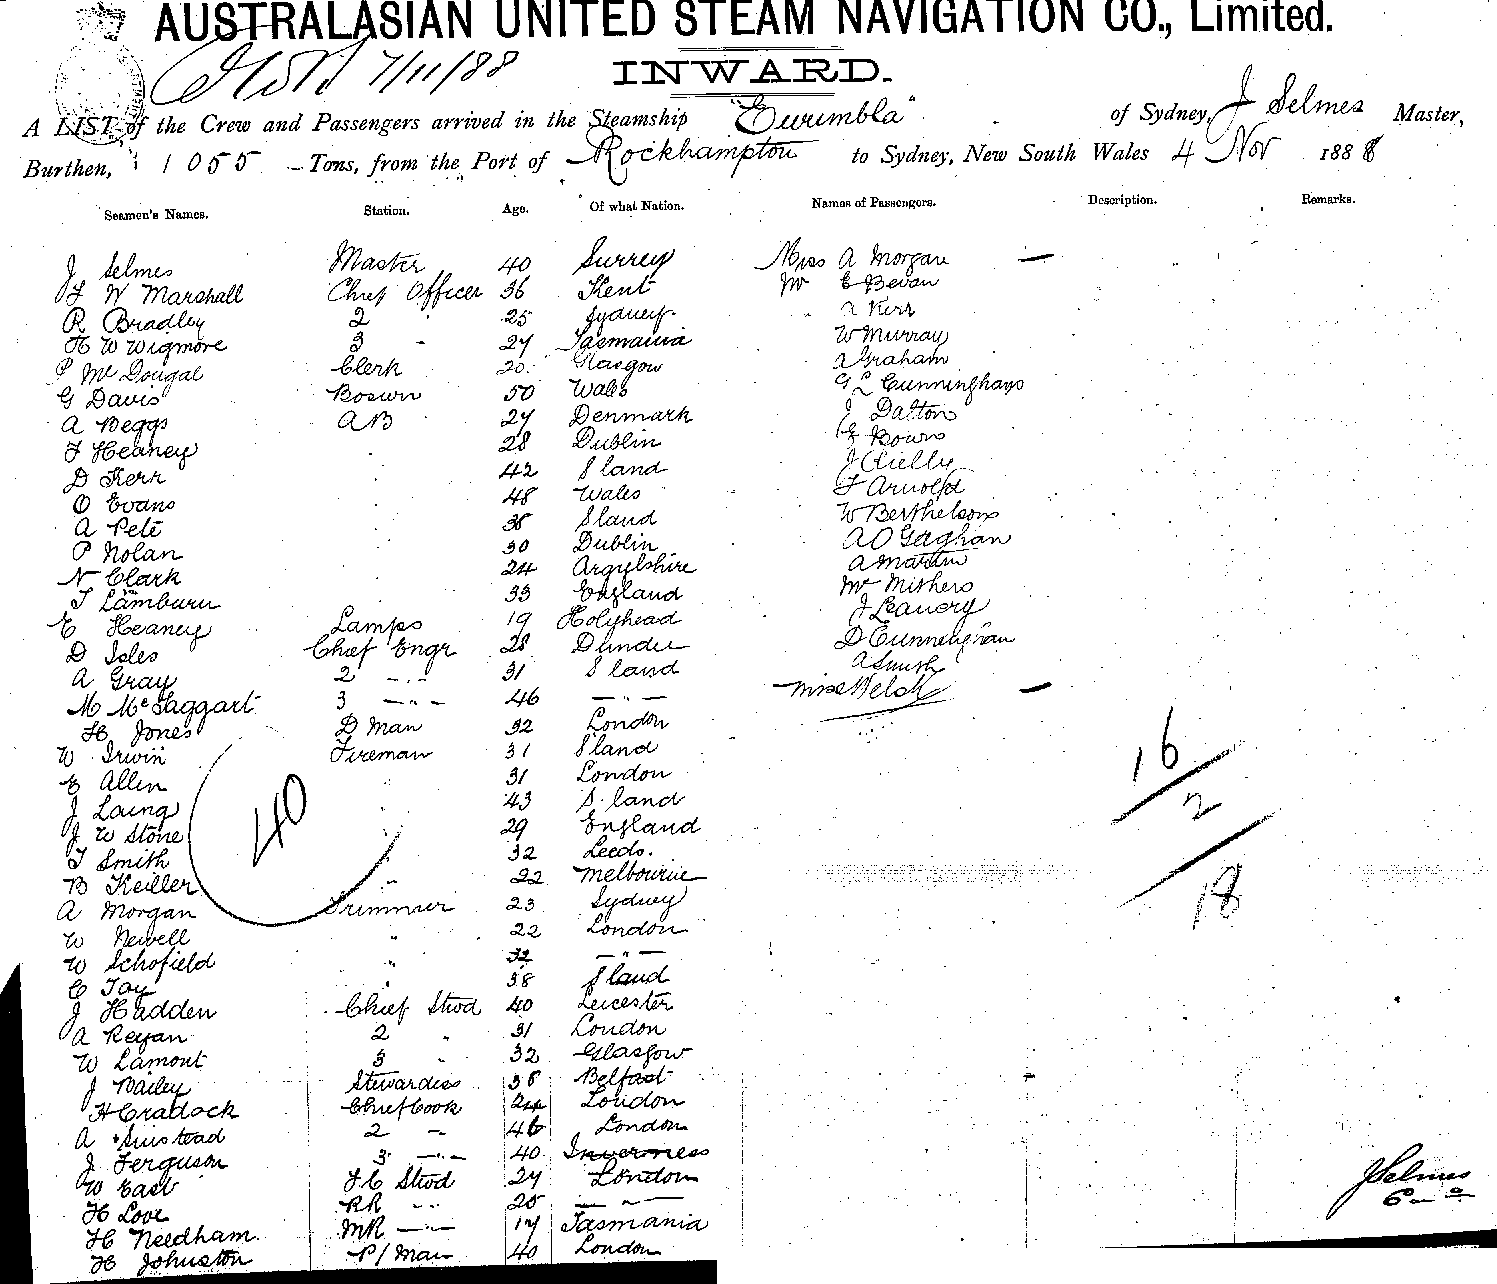 AUSTRALASIAN UNITED STEAM NAVIGATION CO., Limited.
7/11/88
INWARD.
A LIST of the Crew and Passengers arrived in the Steamship "Eurumbla" of Sydney, J Selmes Master,
Burthen, 1055 Tons, from the Port of Rockhampton to Sydney, New South Wales 4 Nov 1888
Seamen's Names. Station. Age. Of what Nation. Names of Passengers. Description. Remarks.
J Selmes Master 40 Surrey Miss A Morgan —
F W Marshall Chief Officer 36 Kent Mr E Bevan
R Bradley 2 " 25 Sydney A Kerr
H W Wigmore 3 - 27 Tasmania W Murray
P McDougal Clerk 20 Glasgow A Graham
G Davis Bosun 50 Wales G L Cunninghays
A Beggs AB 27 Denmark J Dalton
F Heaney 28 Dublin Bowns
D Kerr 42 S land J Rielly
O Evans 48 Wales F Arnold
A Pete 38 S land W Berthelsons
P Nolan 30 Dublin A O Gaghan
N Clark 24 Argylshire A Martin
T Lamburn 33 England Mr Mithers
E Heaney Lamps 19 Holyhead J Leavery
D Isles Chief Engr 28 Dundee D Cunningham
A Gray 2 - " - 31 S land A Smith
M McTaggart 3 — " — 46 — " — Miss Welch —
H Jones D Man 32 London
W Irwin Fireman 31 S land
E Allen " 31 London
J Laing " 43 S. land
J W Stone " 29 England
T Smith " 32 Leeds.
B Keiller " 22 Melbourne
A Morgan Trimmer 23 Sydney
W Newell " 22 London
W Schofield " 32 — " —
C Toy " 38 S land
J Hadden Chief Stwd 40 Leicester
A Regan 2 " 31 London
W Lamont 3 " 32 Glasgow
J Bailey Stewardess 38 Belfast
H Cradock Chief Cook 24 London
A Suistead 2 - 46 London
J Ferguson 3 — " — 40 Inverness
W East F C Stwd 27 London
H Love RR " 25 — " —
H Needham. MR — " — 17 Tasmania
H Johnston P/Man 40 London
40
16
2
18
J Selmes